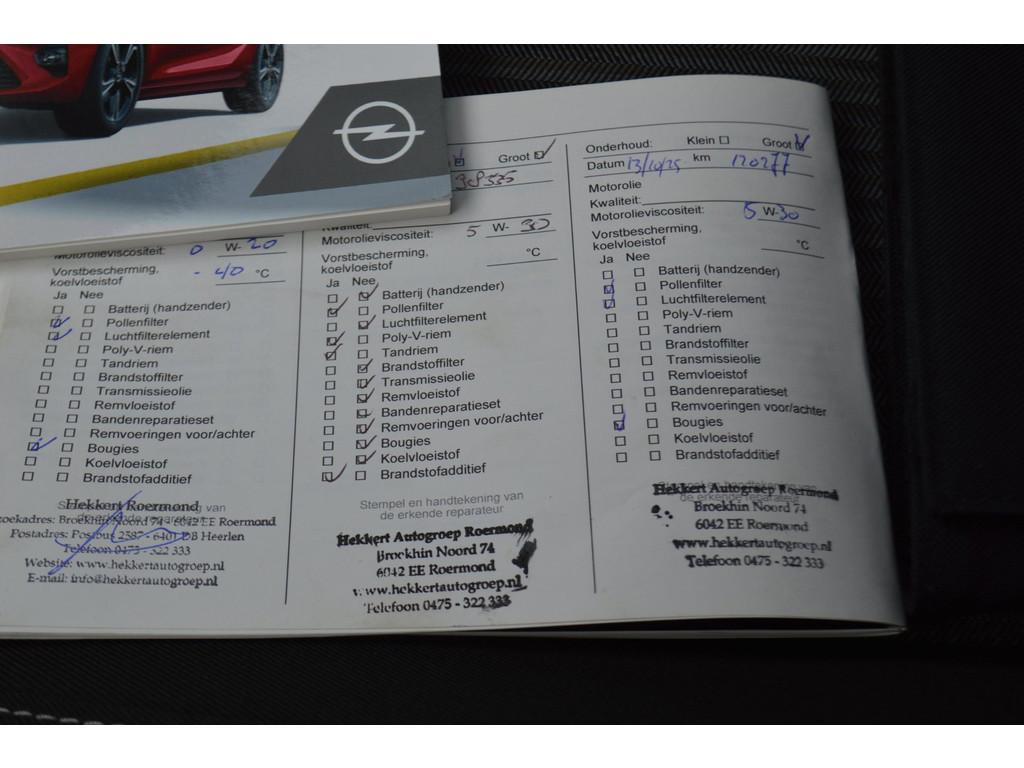 Motorolieviscositeit: 0 W- 20
Vorstbescherming, koelvloeistof - 40 °C
Ja Nee
Batterij (handzender)
Pollenfilter
Luchtfilterelement
Poly-V-riem
Tandriem
Brandstoffilter
Transmissieolie
Remvloeistof
Bandenreparatieset
Remvoeringen voor/achter
Bougies
Koelvloeistof
Brandstofadditief
Hekkert Roermond
zoekadres: Broekhin Noord 74 - 6042 EE Roermond
Postadres: Postbus 2587 - 6401 DB Heerlen
Telefoon 0475 - 322 333
Website: www.hekkertautogroep.nl
E-mail: info@hekkertautogroep.nl
Groot
Kwaliteit:
Motorolieviscositeit: 5 W- 30
Vorstbescherming,
koelvloeistof °C
Ja Nee
Batterij (handzender)
Pollenfilter
Luchtfilterelement
Poly-V-riem
Tandriem
Brandstoffilter
Transmissieolie
Remvloeistof
Bandenreparatieset
Remvoeringen voor/achter
Bougies
Koelvloeistof
Brandstofadditief
Stempel en handtekening van
de erkende reparateur
Hekkert Autogroep Roermond
Broekhin Noord 74
6042 EE Roermond
www.hekkertautogroep.nl
Telefoon 0475 - 322 333
Onderhoud: Klein Groot
Datum 13/10/25 km 120277
Motorolie
Kwaliteit:
Motorolieviscositeit: 5 W-30
Vorstbescherming,
koelvloeistof °C
Ja Nee
Batterij (handzender)
Pollenfilter
Luchtfilterelement
Poly-V-riem
Tandriem
Brandstoffilter
Transmissieolie
Remvloeistof
Bandenreparatieset
Remvoeringen voor/achter
Bougies
Koelvloeistof
Brandstofadditief
Stempel en handtekening van
de erkende reparateur
Hekkert Autogroep Roermond
Broekhin Noord 74
6042 EE Roermond
www.hekkertautogroep.nl
Telefoon 0475 - 322 333